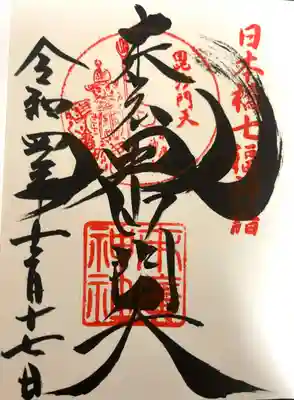 日本橋七福神詣
毘沙門天
末廣毘沙門天
末廣神社
令和四年十二月十七日